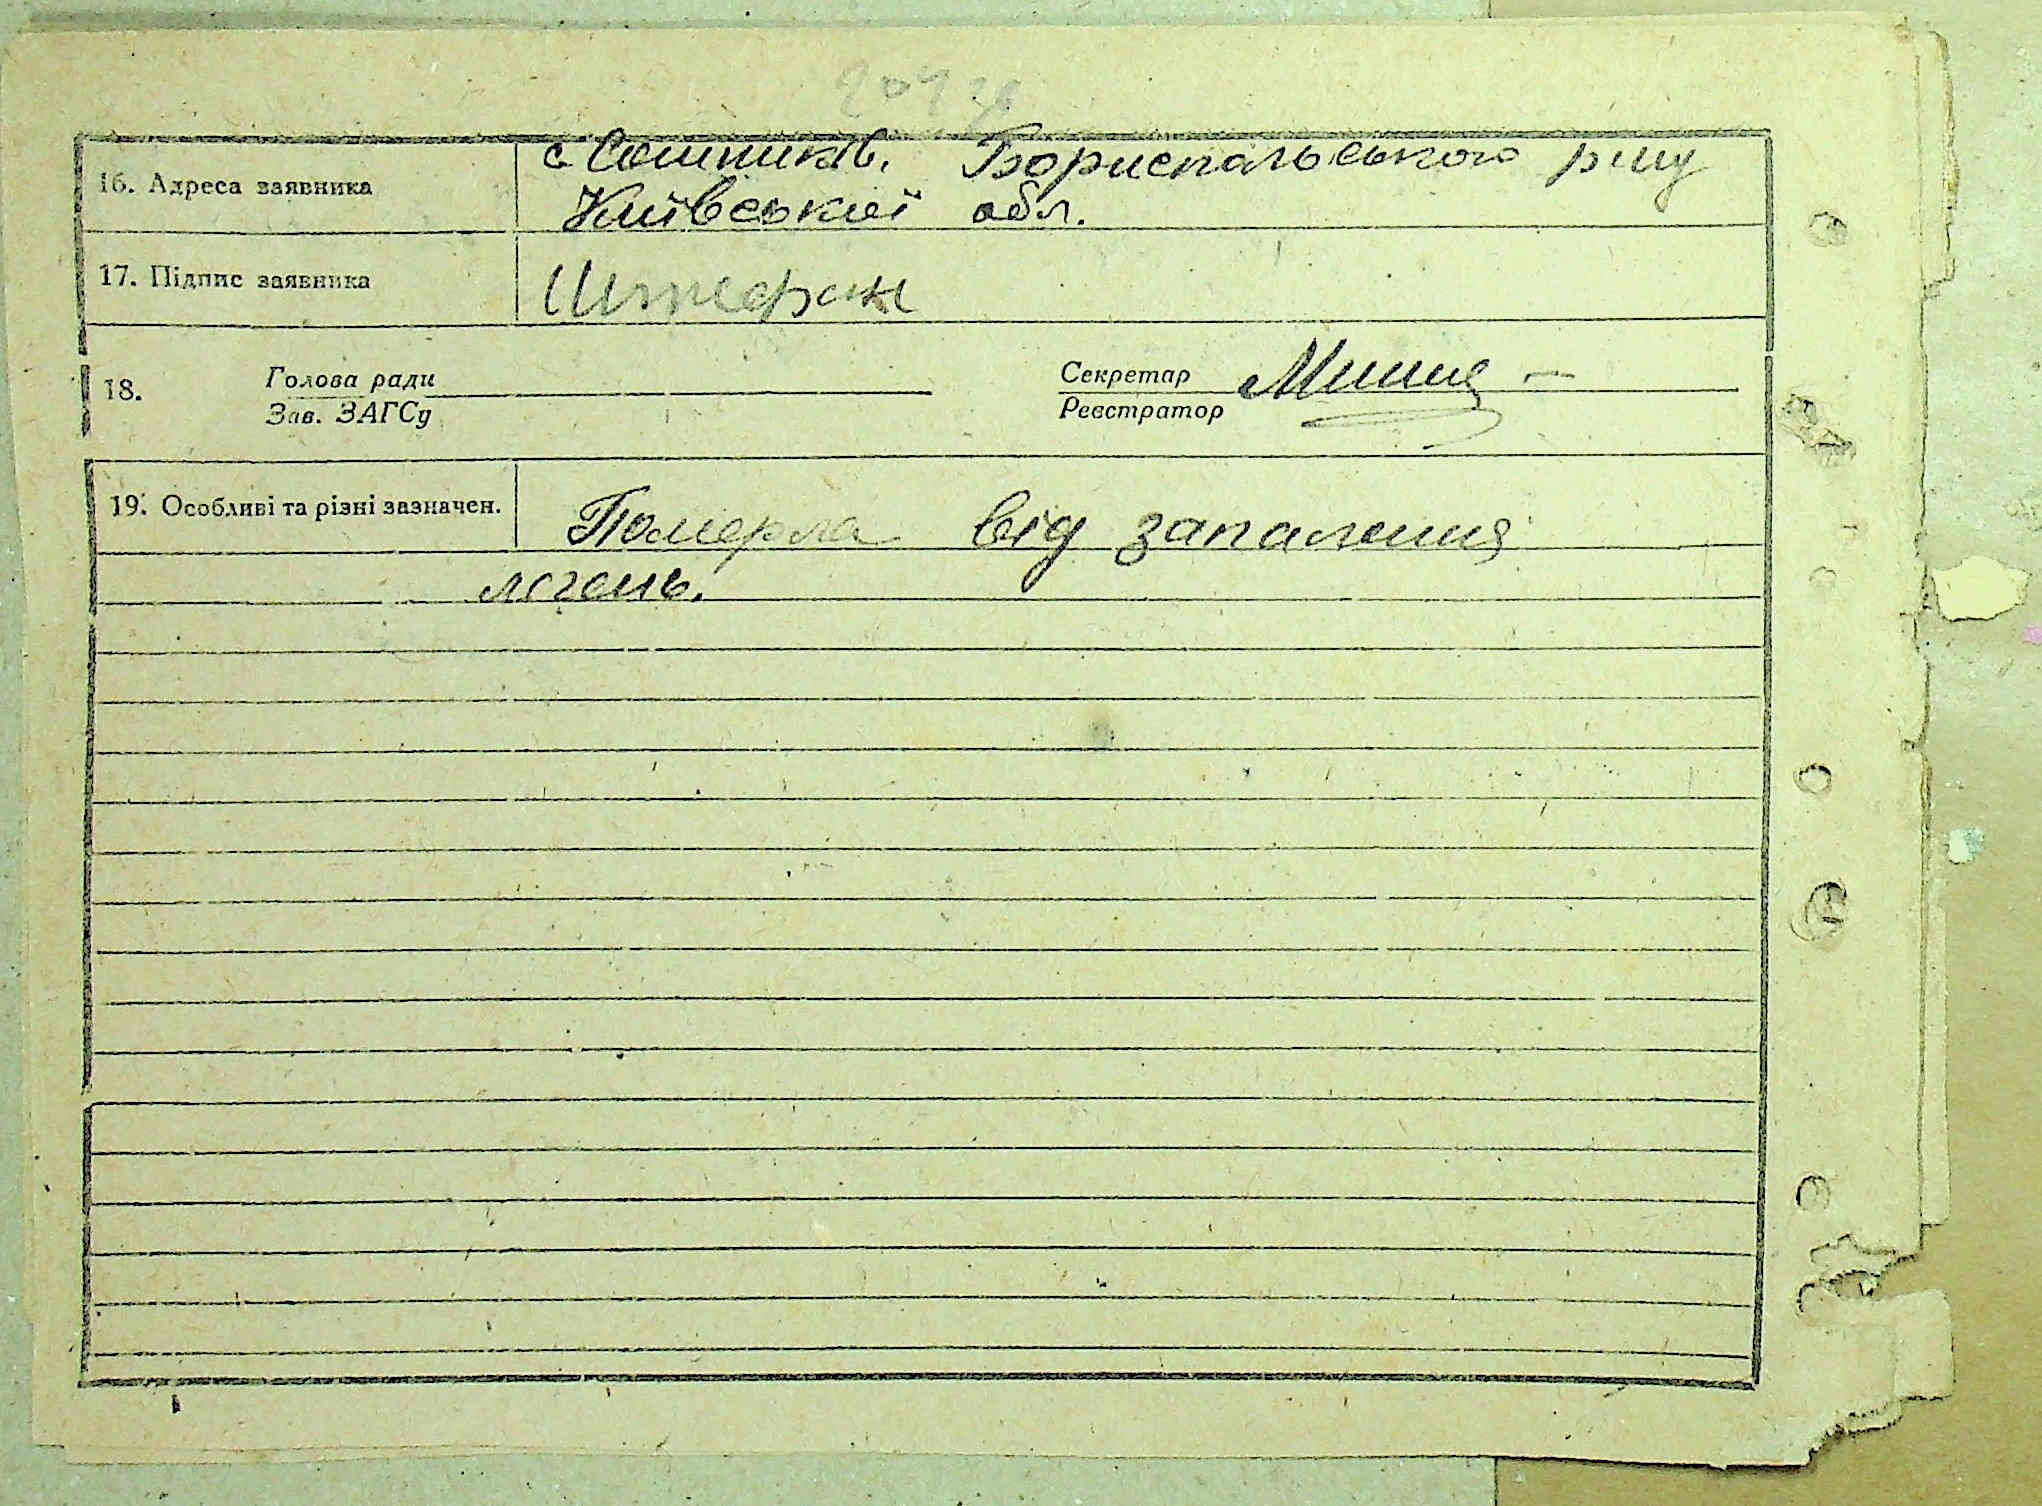 16. Адреса заявника
с Сошників. Бориспольського р-ну
Київської обл.
17. Підпис заявника
Штефан
18. Голова ради
Зав. ЗАГСу
Секретар
Реєстратор
19. Особливі та різні зазначен.
Померла від запалення
легень.